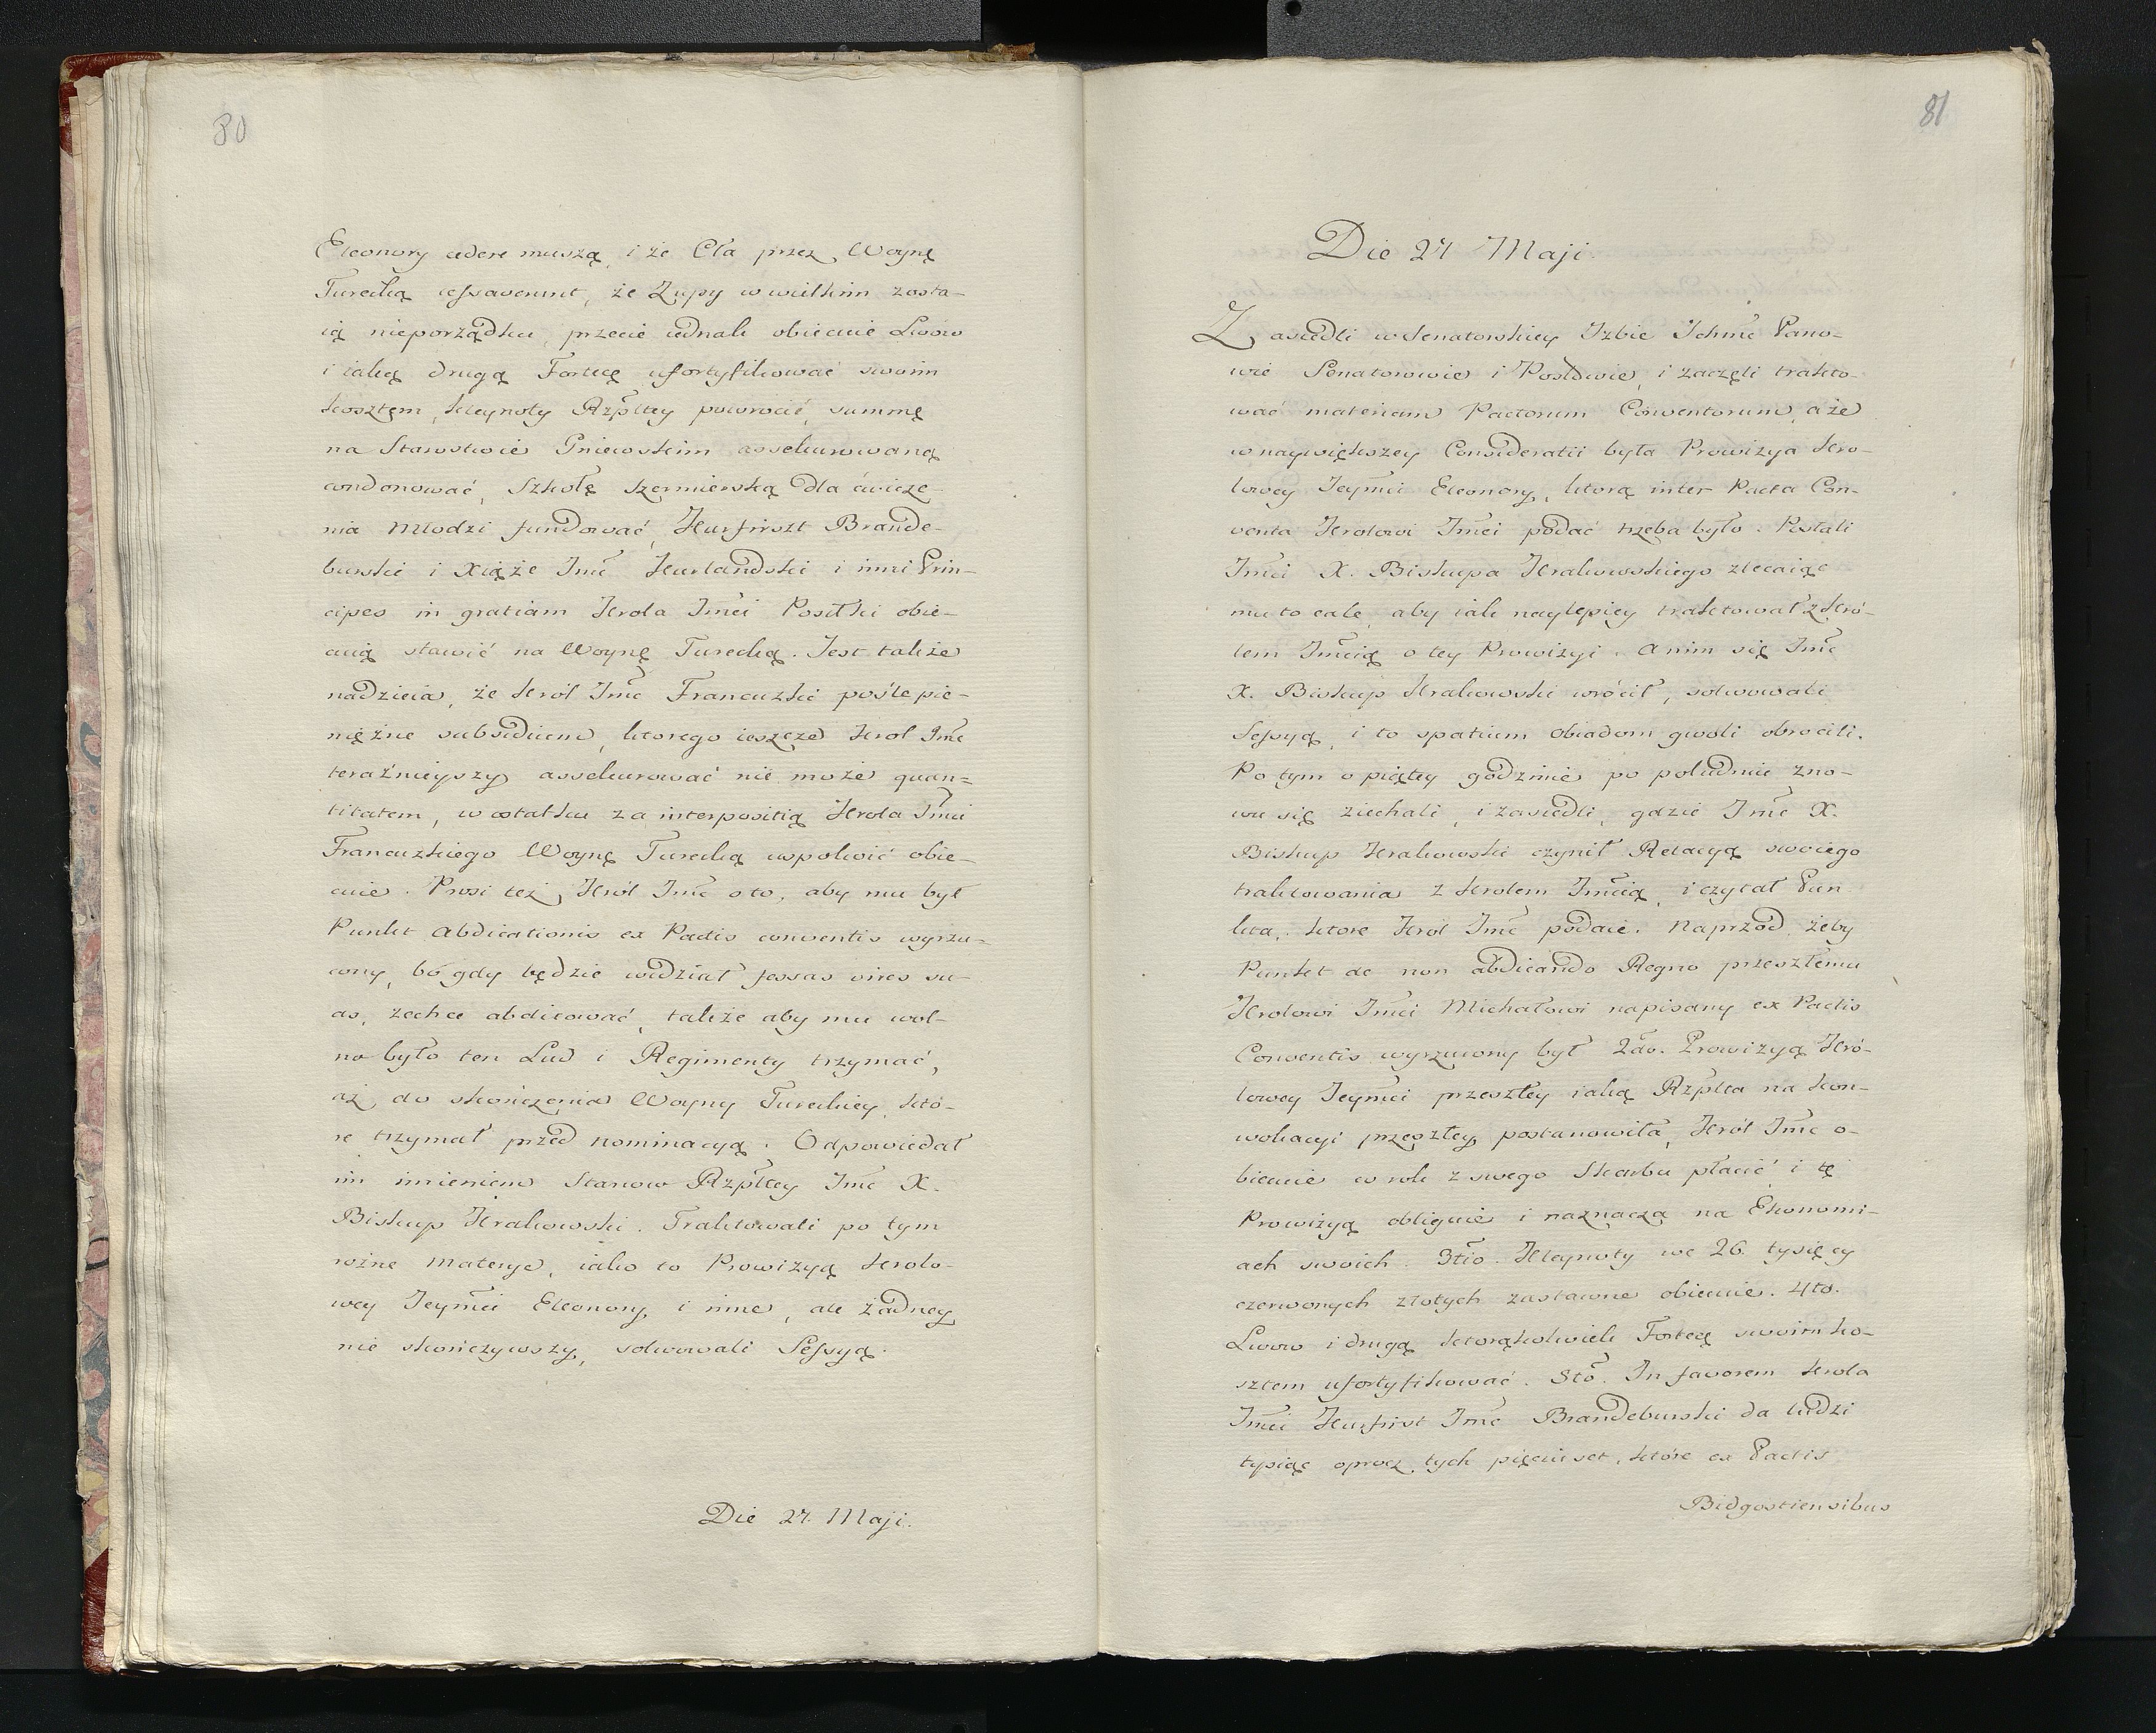 80
Eleonory cedere muszą, i że Cła przez Woynę
Turecką cessaverunt, że Żupy w wielkim zosta-
ią nieporządku, przecie iednak obiecuie Lwow
i iaką drugą Fortecę ufortyfikować swoim
kosztem, kleynoty Rzpltey powrocić, summę
na Starostwie Gniewskim assekurowaną
condonować, Szkołę szermierską dla ćwicze-
nia Młodzi fundować, Kurfirszt Brande-
burski i Xiąże Jmć Kurlandski i inni Prin-
cipes in gratiam Krola Jmci Posiłki obie-
cuią stawić na Woynę Turecką. Jest także
nadzieia, że Król Jmć Francuzki pośle pie-
niężne subsidium, ktorego ieszcze Krol Jmć
teraźnieyszy assekurować nie może quan=
titatem, w ostatku za interpositią Krola Jmci
Francuzkiego Woynę Turecką uspokoić obie-
cuie. Prosi też Król Jmć o to, aby mu był
Punkt Abdicationis ex Pactis conventis wyrzu=
cony, bo gdy będzie widział fessas vires su-
as, zechce abdicować, także aby mu wol-
no było ten Lud i Regimenty trzymać,
aż do skończenia Woyny Tureckiey, któ-
re trzymał przed nominacyą. Odpowiedał
im imieniem Stanow Rzpltey Jmć X.
Biskup Krakowski. Traktowali po tym
rożne materye, iako to Prowizyą Krolo-
wey Jeymci Eleonory, i inne, ale żadney
nie skończywszy, solwowali Sessyą.
Die 27. Maji.
81
Die 27 Maji.
Zasiedli w Senatorskiey Izbie Ichmć Pano-
wie Senatorowie i Posłowie, i zaczęli trakto-
wać materiam Pactorum Conventorum, a że
w naywiększey Consideratii była Prowizya Kro-
lowey Jeymci Eleonory, ktorą inter Pacta Con-
venta Krolowi Jmci podać trzeba było. Posłali
Jmci X. Biskupa Krakowskiego zlecaiąc
mu to cale, aby iak naylepiey traktował z Kró-
lem Jmcią o tey Prowizyi. A nim się Jmć
X. Biskup Krakowski wrócił, solwowali
Sessyą, i to spatium obiadom gwoli obrocili.
Po tym o piątey godzinie po południu zno-
wu się ziechali, i zasiedli, gdzie Jmć X.
Biskup Krakowski czynił Relacyą swoiego
traktowania z Krolem Jmcią, i czytał Pun
kta, ktore Krol Jmć podaie. Naprzod, żeby
Punkt de non abdicando Regno przeszłemu
Krolowi Jmci Michałowi napisany ex Pactis
Conventis wyrzucony był 2do. Prowizyą Kró-
lowey Jeymci przeszłey iaką Rzplta na Kon-
wokacyi przeszłey postanowiła, Król Jmć o-
biecuie co rok z swego Skarbu płacić i tę
Prowizyą obliguie i naznacza na Ekonomi-
ach swoich. 3tio. Kleynoty we 26. tysięcy
czerwonych złotych zastawne obiecuie. 4to.
Lwow i drugą ktorąkolwiek Fortecę swoim ko-
sztem ufortyfikować. 5to. In favorem Krola
Jmci Kurfirst Jmć Brandeburski da ludzi
tysiąc oprocz tych pięciuset, które ex Pactis
Bidgostiensibus